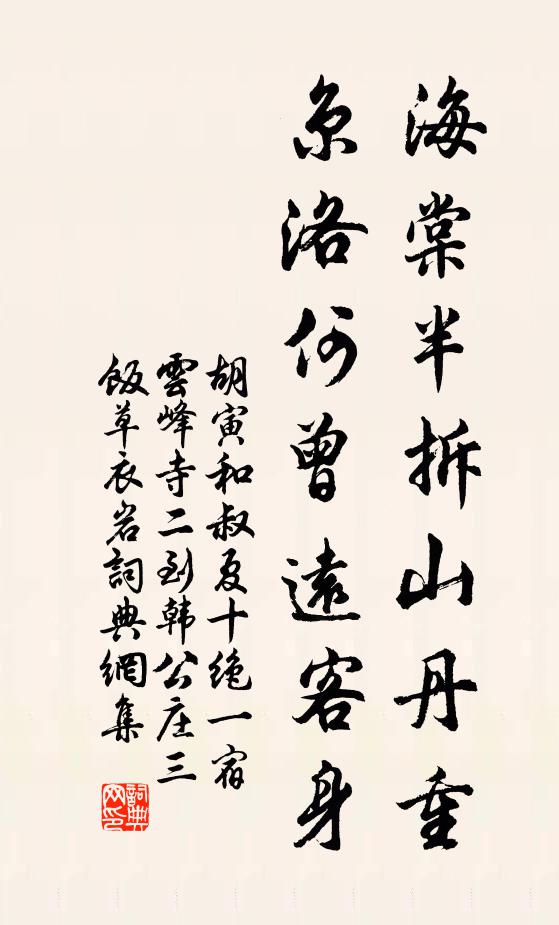 海棠半拆山丹重
京洛何曾遠客身
胡寅和叔夏十绝一宿
雲峰寺二到韩公庄三
飯草衣岩詞典網集
詞典网印